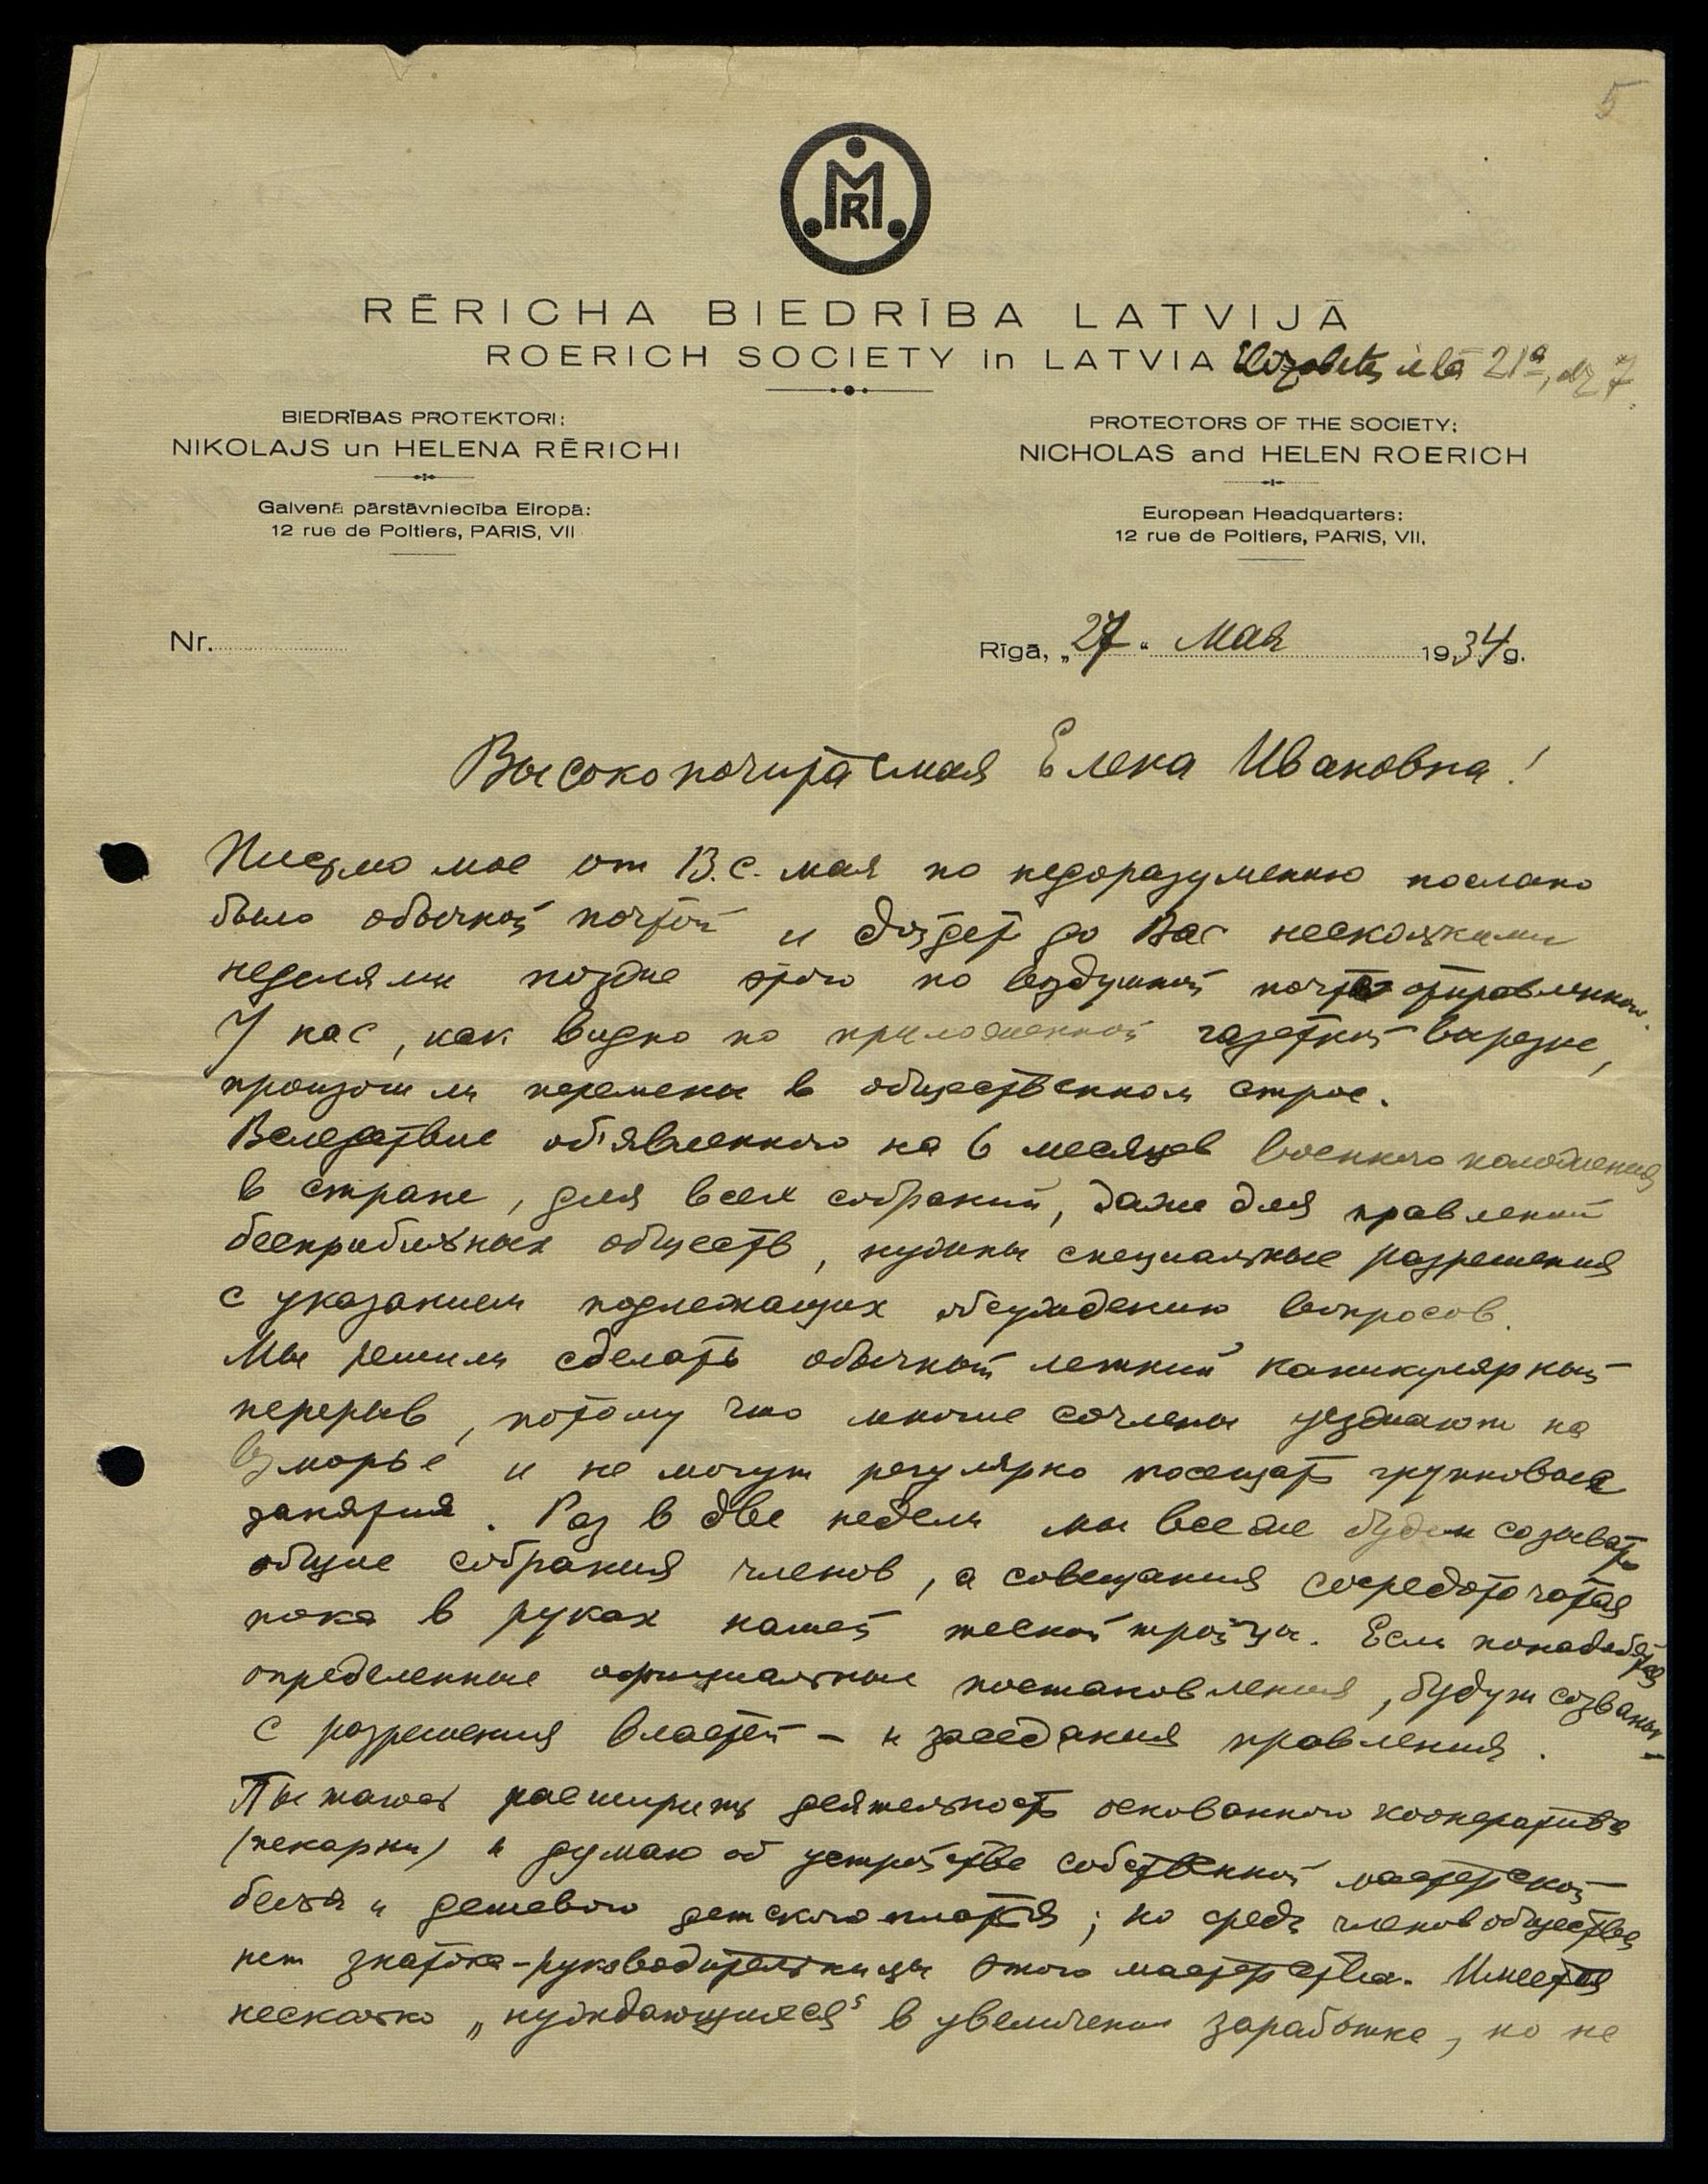 5
MR
RĒRICHA BIEDRĪBA LATVIJĀ
ROERICH SOCIETY in LATVIA Elizabetes ielā 21a, dz 7.
BIEDRĪBAS PROTEKTORI:
NIKOLAJS un HELENA RĒRICHI
Galvenā pārstāvniecība Eiropā:
12 rue de Poitiers, PARIS, VII
PROTECTORS OF THE SOCIETY:
NICHOLAS and HELEN ROERICH
European Headquarters:
12 rue de Poitiers, PARIS, VII.
Nr.
Rīgā, „27." Мая 1934 g.
Высокопочитаемая Елена Ивановна!
Письмо мое от 13. с. мая по недоразумению послано
было обычной почтой и дойдет до Вас несколькими
неделями позже этого по воздушной почте отправленного.
У нас, как видно по приложенной газетной вырезке,
произошли перемены в общественном строе.
Вследствие об'явленного на 6 месяцев военного положения
в стране, для всех собраний, даже для правлений
бесприбыльных обществ, нужны специальные разрешения
с указанием подлежащих обсуждению вопросов.
Мы решили сделать обычный летний каникулярный
перерыв, потому что многие сочлены уезжают на
взморье и не могут регулярно посещать групповые
занятия. Раз в две недели мы все же будем созывать
общие собрания членов, а совещания сосредоточатся
пока в руках нашей тесной тройцы. Если понадобятся
определенные официальные постановления, будут созваны
с разрешения властей – и заседания правления.
Пытаюсь расширить деятельность основанного кооператива
(пекарни) и думаю об устройстве собственной мастерской
белья и дешевого детского платья; но средь членов общества
нет знатока-руководительницы этого мастерства. Имеется
несколько „нуждающихся" в увеличении заработка, но не